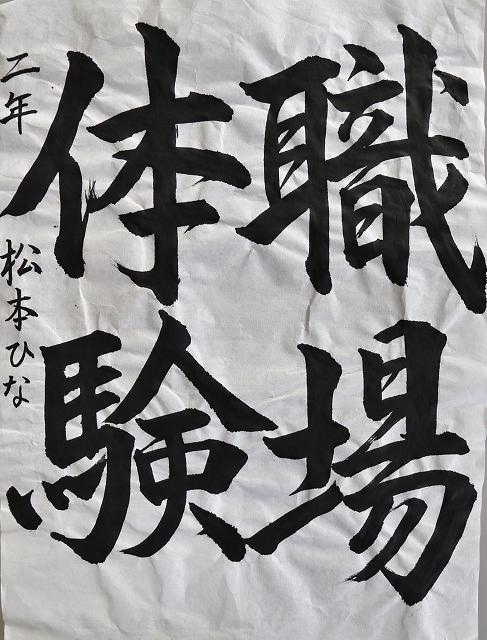 職場
体験
二年 松本ひな